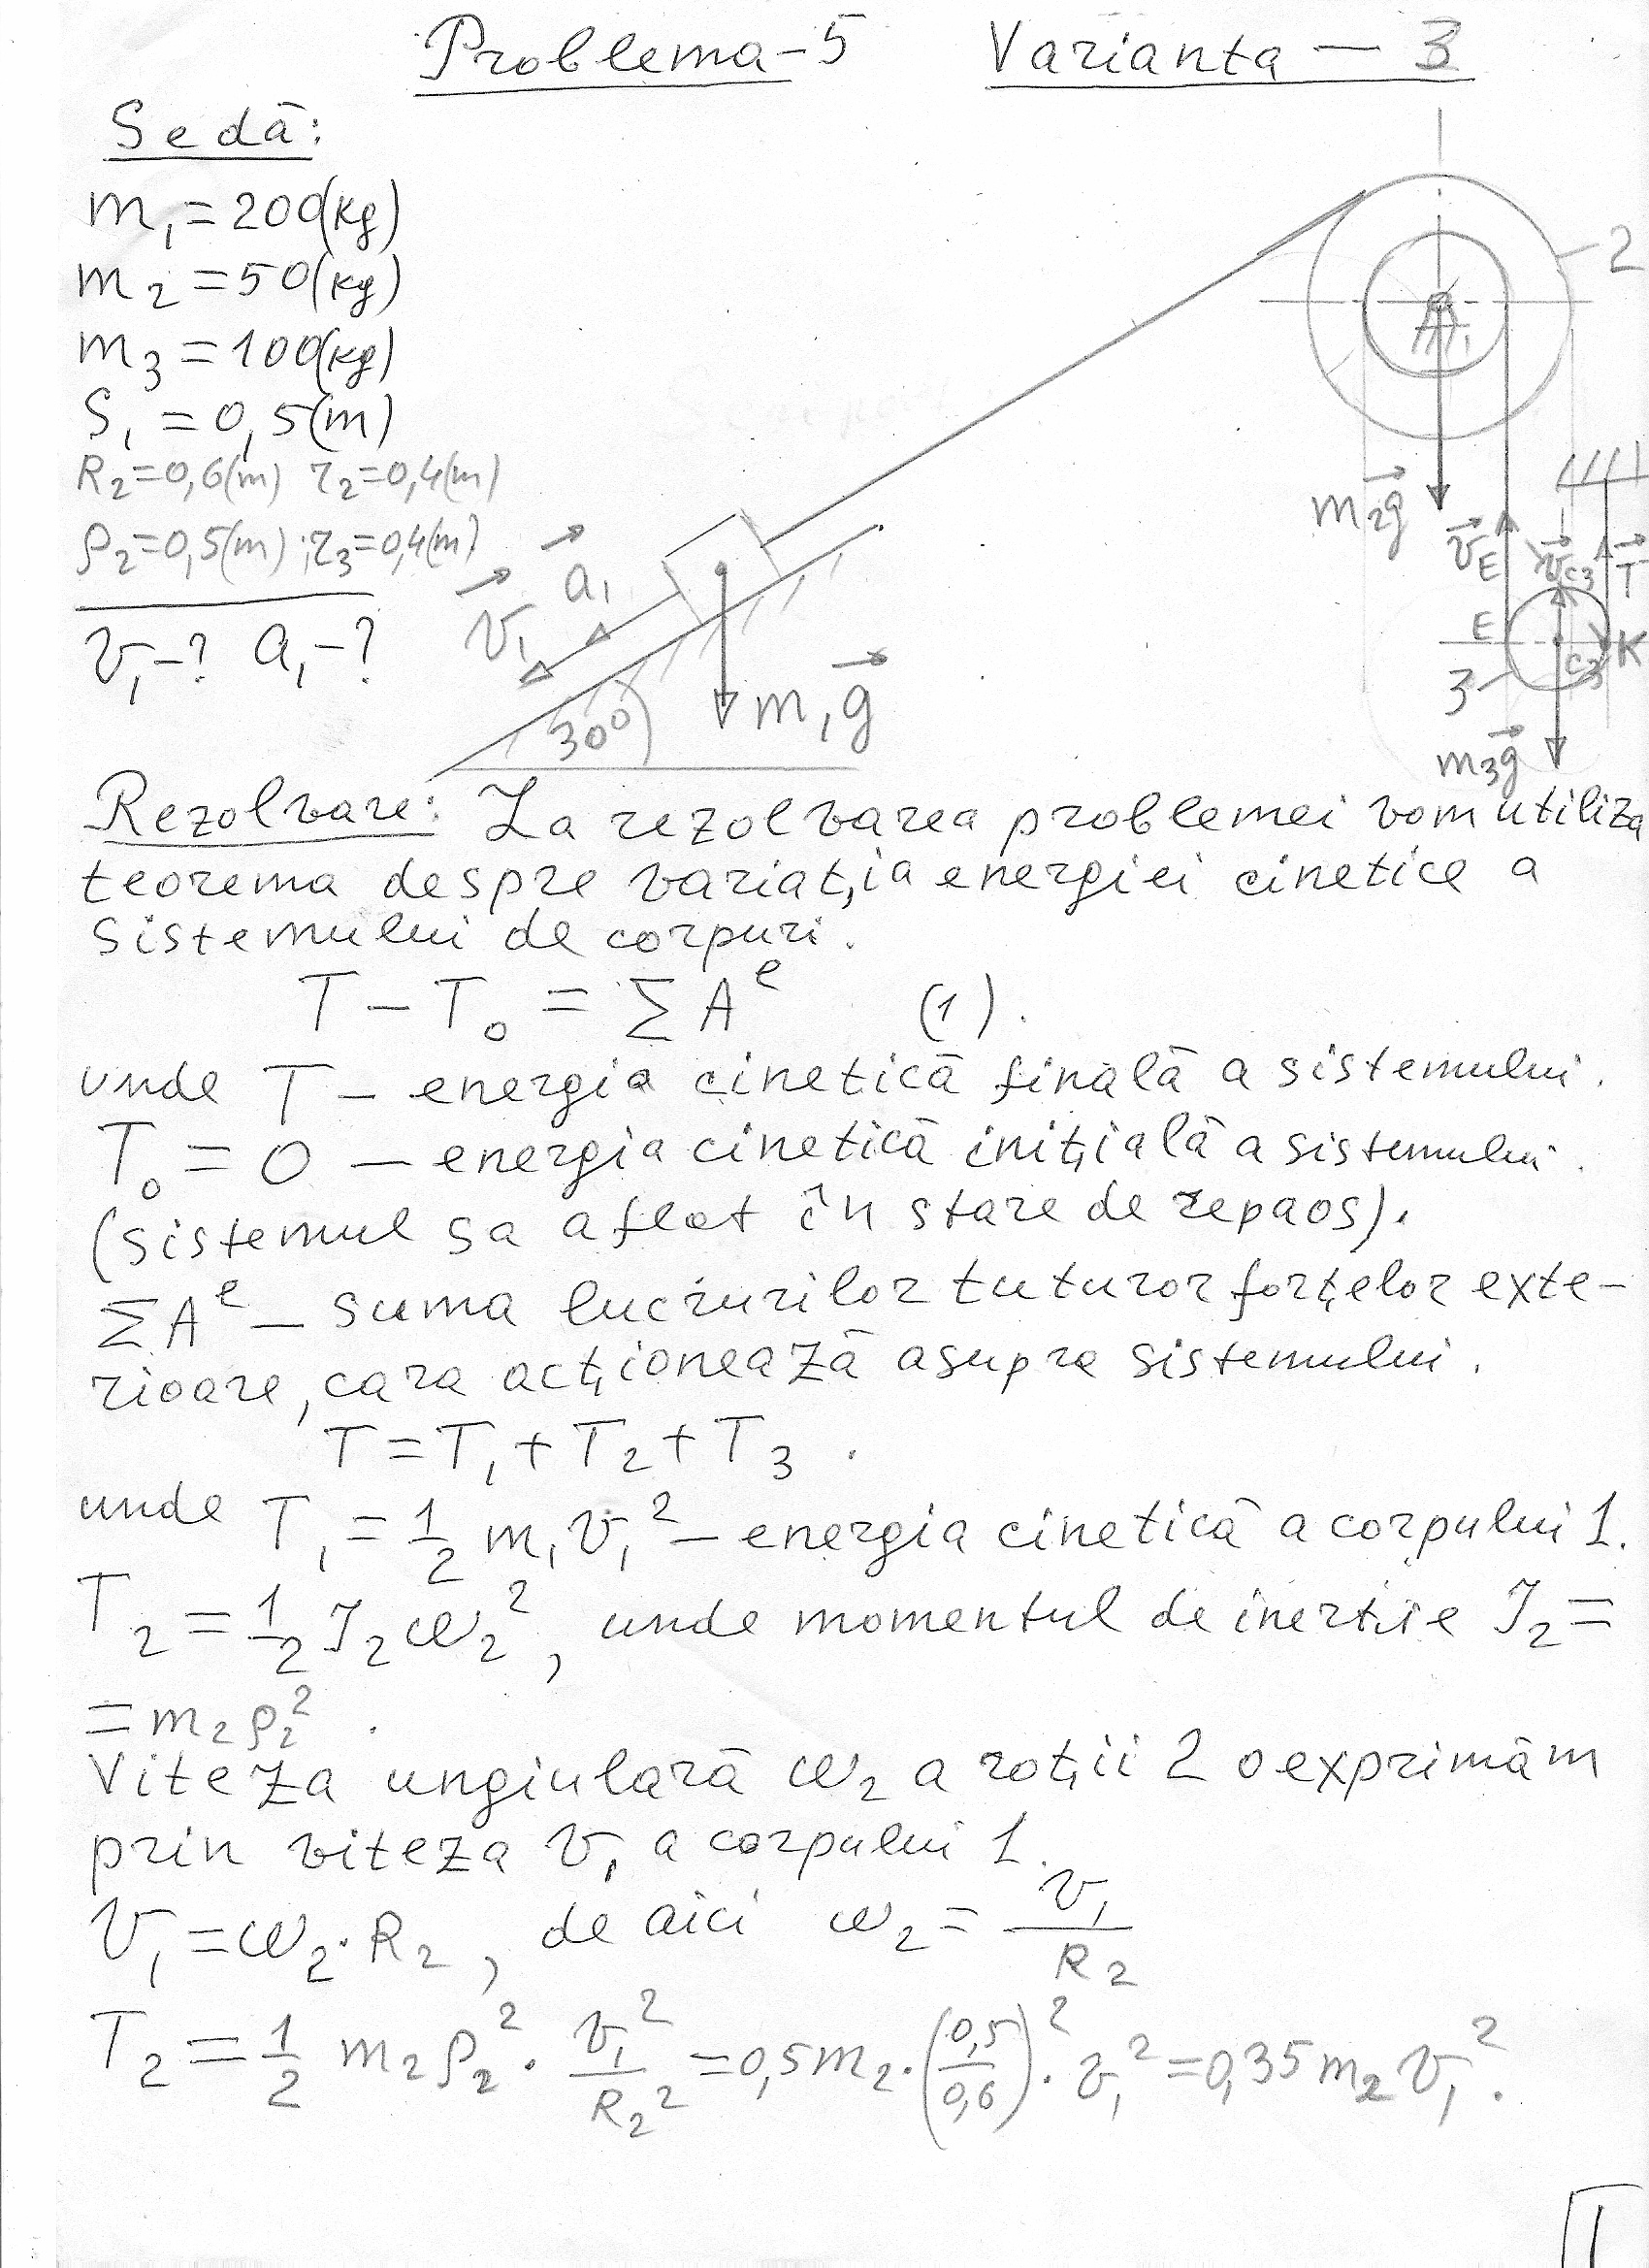 Problema-5 Varianta - 3
Se dă:
m₁=200(kg)
m₂=50(kg)
m₃=100(kg)
S₁=0,5(m)
R₂=0,6(m) r₂=0,4(m)
ρ₂=0,5(m); r₃=0,4(m)
v₁-? a₁-?
a₁
v₁
30°
m₁g
2
m₂g
v_E
v_C3
T
E
C3
K
3
m₃g
Rezolvare: La rezolvarea problemei vom utiliza
teorema despre variația energiei cinetice a
sistemului de corpuri.
T - T₀ = ΣAᵉ (1).
unde T - energia cinetică finală a sistemului.
T₀ = 0 - energia cinetică inițială a sistemului.
(sistemul sa aflat în stare de repaos).
ΣAᵉ - suma lucrurilor tuturor forțelor exte-
rioare, cara acționează asupra sistemului.
T = T₁ + T₂ + T₃.
unde T₁ = 1/2 m₁v₁² - energia cinetică a corpului 1.
T₂ = 1/2 J₂ω₂², unde momentul de inerție J₂=
= m₂ρ₂².
Viteza ungiulară ω₂ a roții 2 o exprimăm
prin viteza v₁ a corpului 1.
v₁ = ω₂·R₂, de aici ω₂ = v₁/R₂
T₂ = 1/2 m₂ρ₂² · v₁²/R₂² = 0,5m₂·(0,5/0,6)²·v₁² = 0,35m₂v₁².